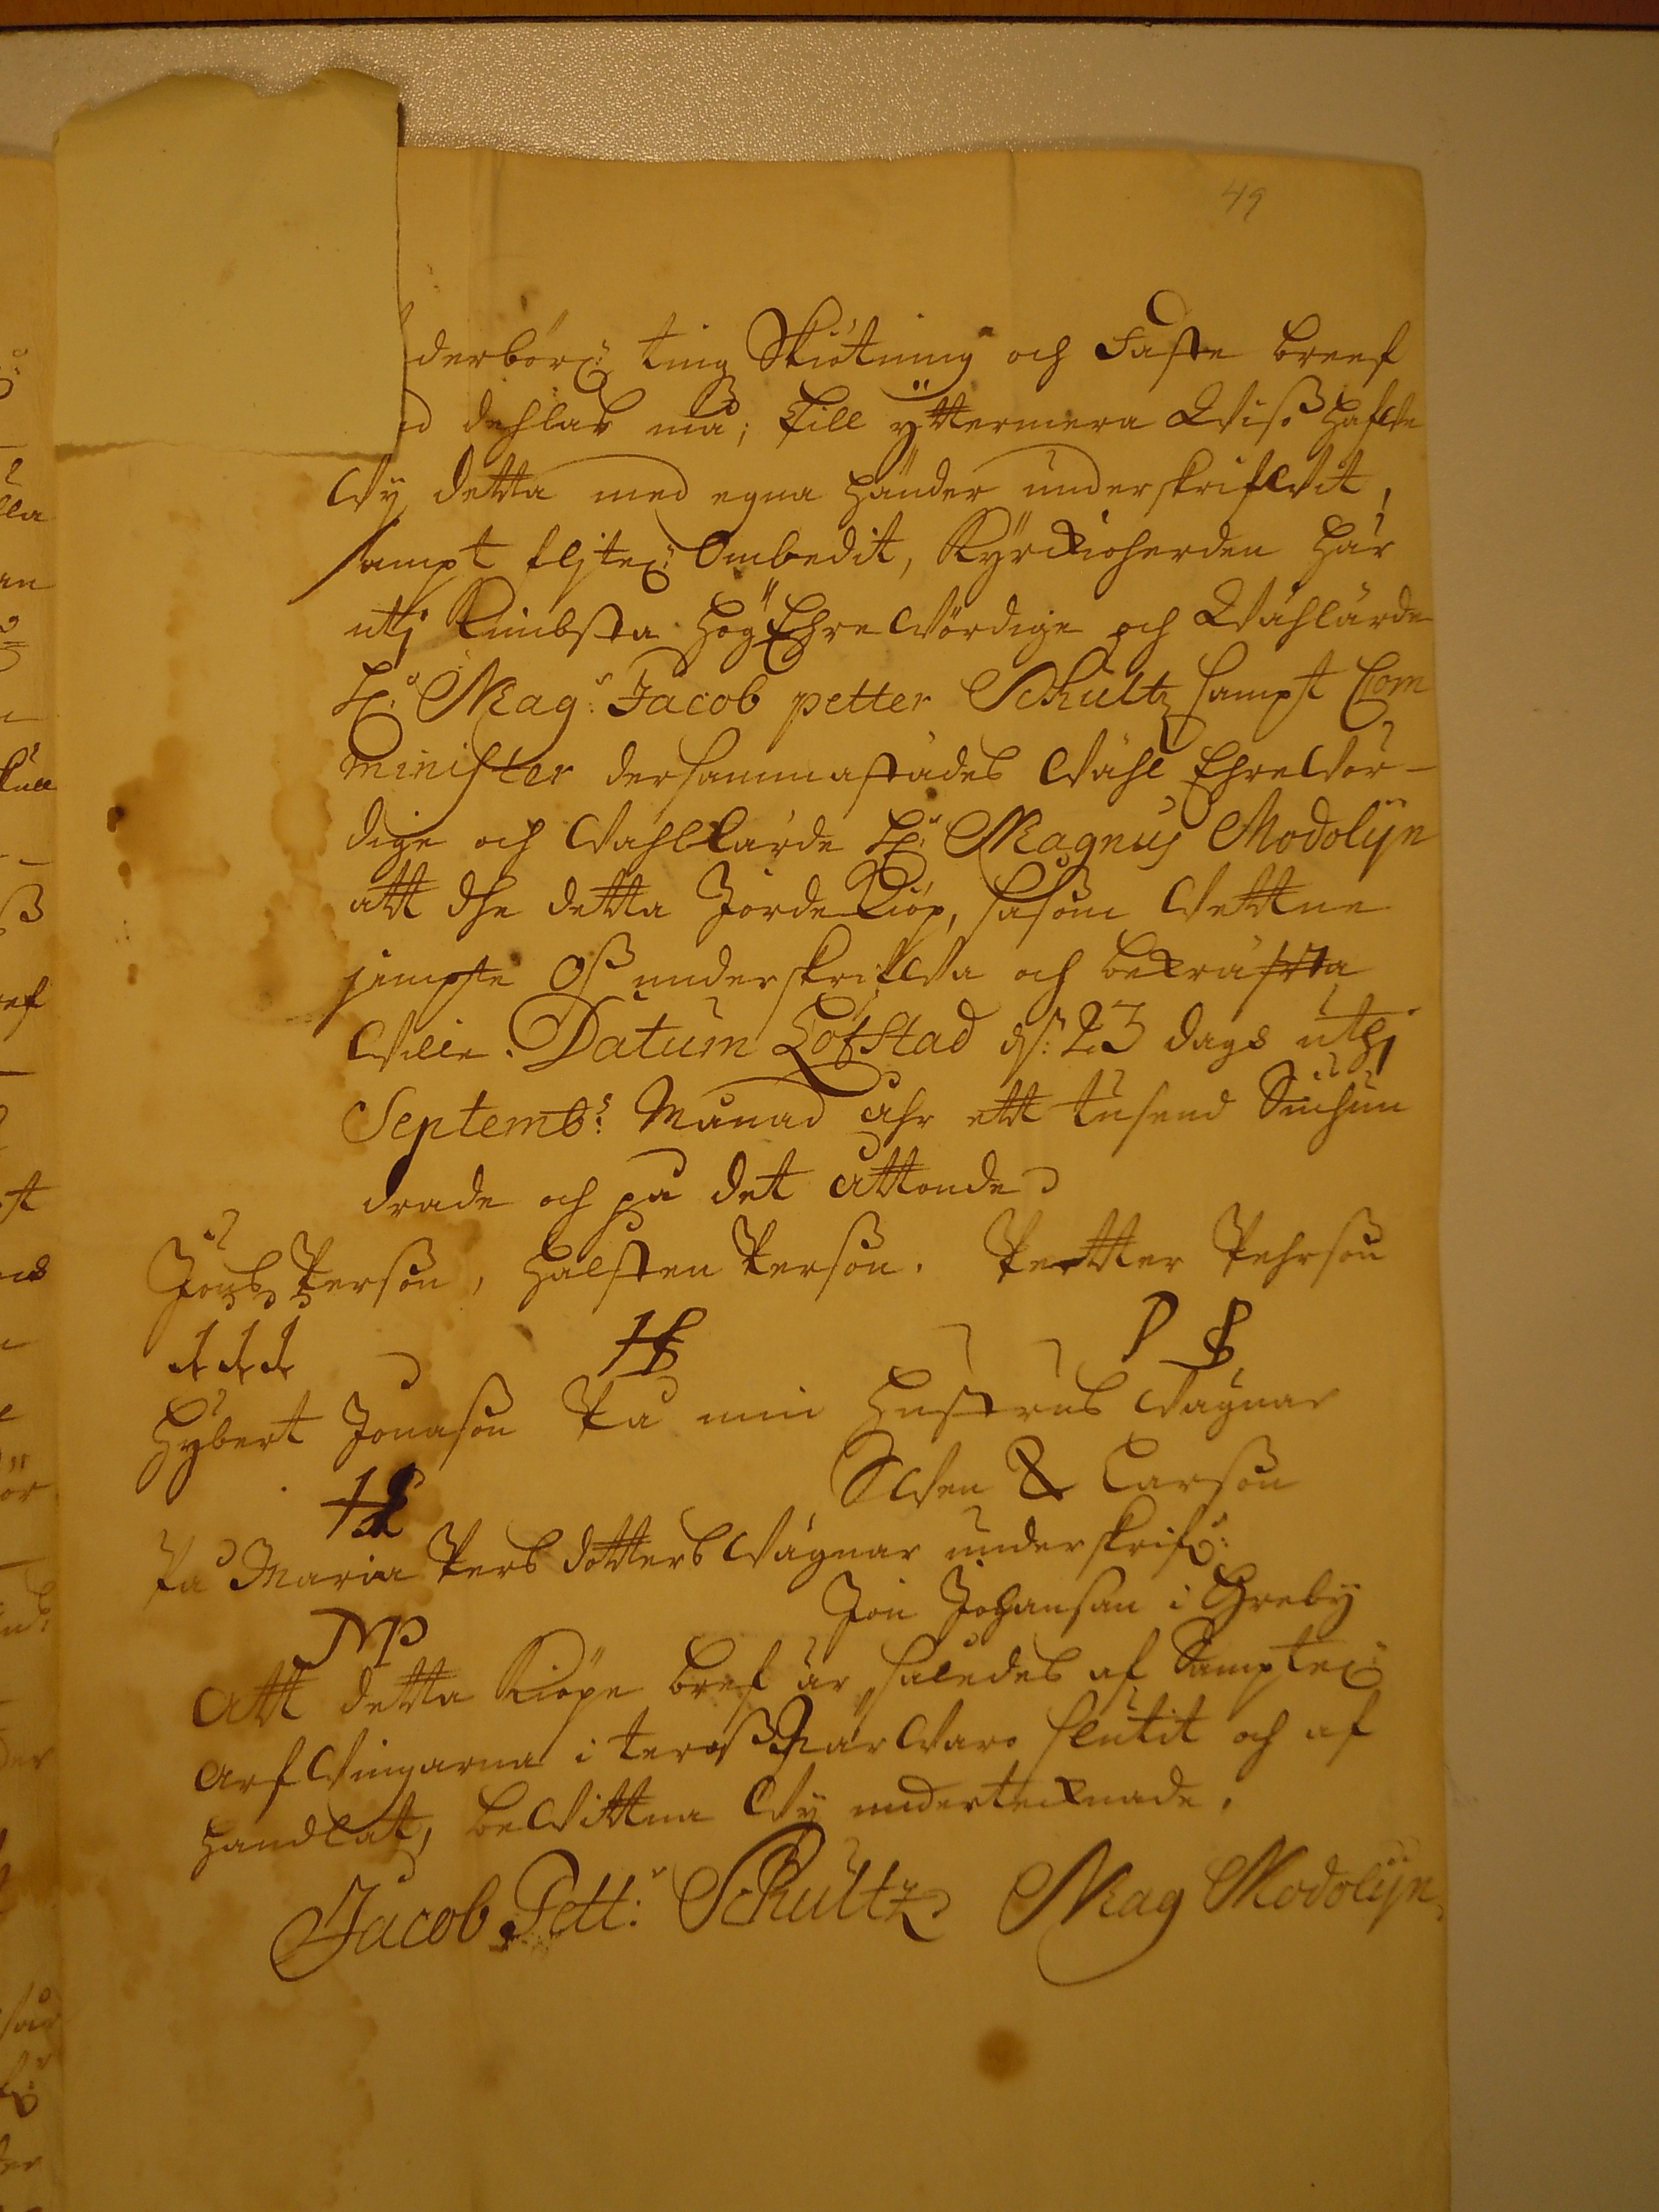 49
derbörl: ting Skiötning och Faste breef
dehlas må; till ÿttermera Wiss hafwe
Wÿ detta med egna händer underskrifwit,
sampt flijtel: Ombedit, Kyrckioherden här
utj Kimbsta HögEhrewördige och Wählärde
H:r Mag:r Jacob petter Schultz sampt Com
minister dersammastädes Wähl Ehrewör-
dige och Wähllärde H:r Magnus Modolijn
att dhe detta Jordekiöp, såsom Wettne
jempte Oss underskrifwa och bekräffta
Wille. Datum Löfstad d: 23 dags uthj
Septemb:s Månad åhr ett tusend Siuhun
drade och på det åttonde
Jons Person, Halsten Person. Pettter Pehrson
HP PS
Hybert Jonason På min Hustrus Wägnar
Swen & Larson
På Maria Pers dotters Wägnar underskrif:
Jon Johanson i Greby
MP
Att detta Kiöpe bref är således af Samptel:
Arfwingarna i teras Närwaro slutit och af
handlat, bewittna Wy undertecknade.
Jacob Pett:r Schultz Mag Modolijn